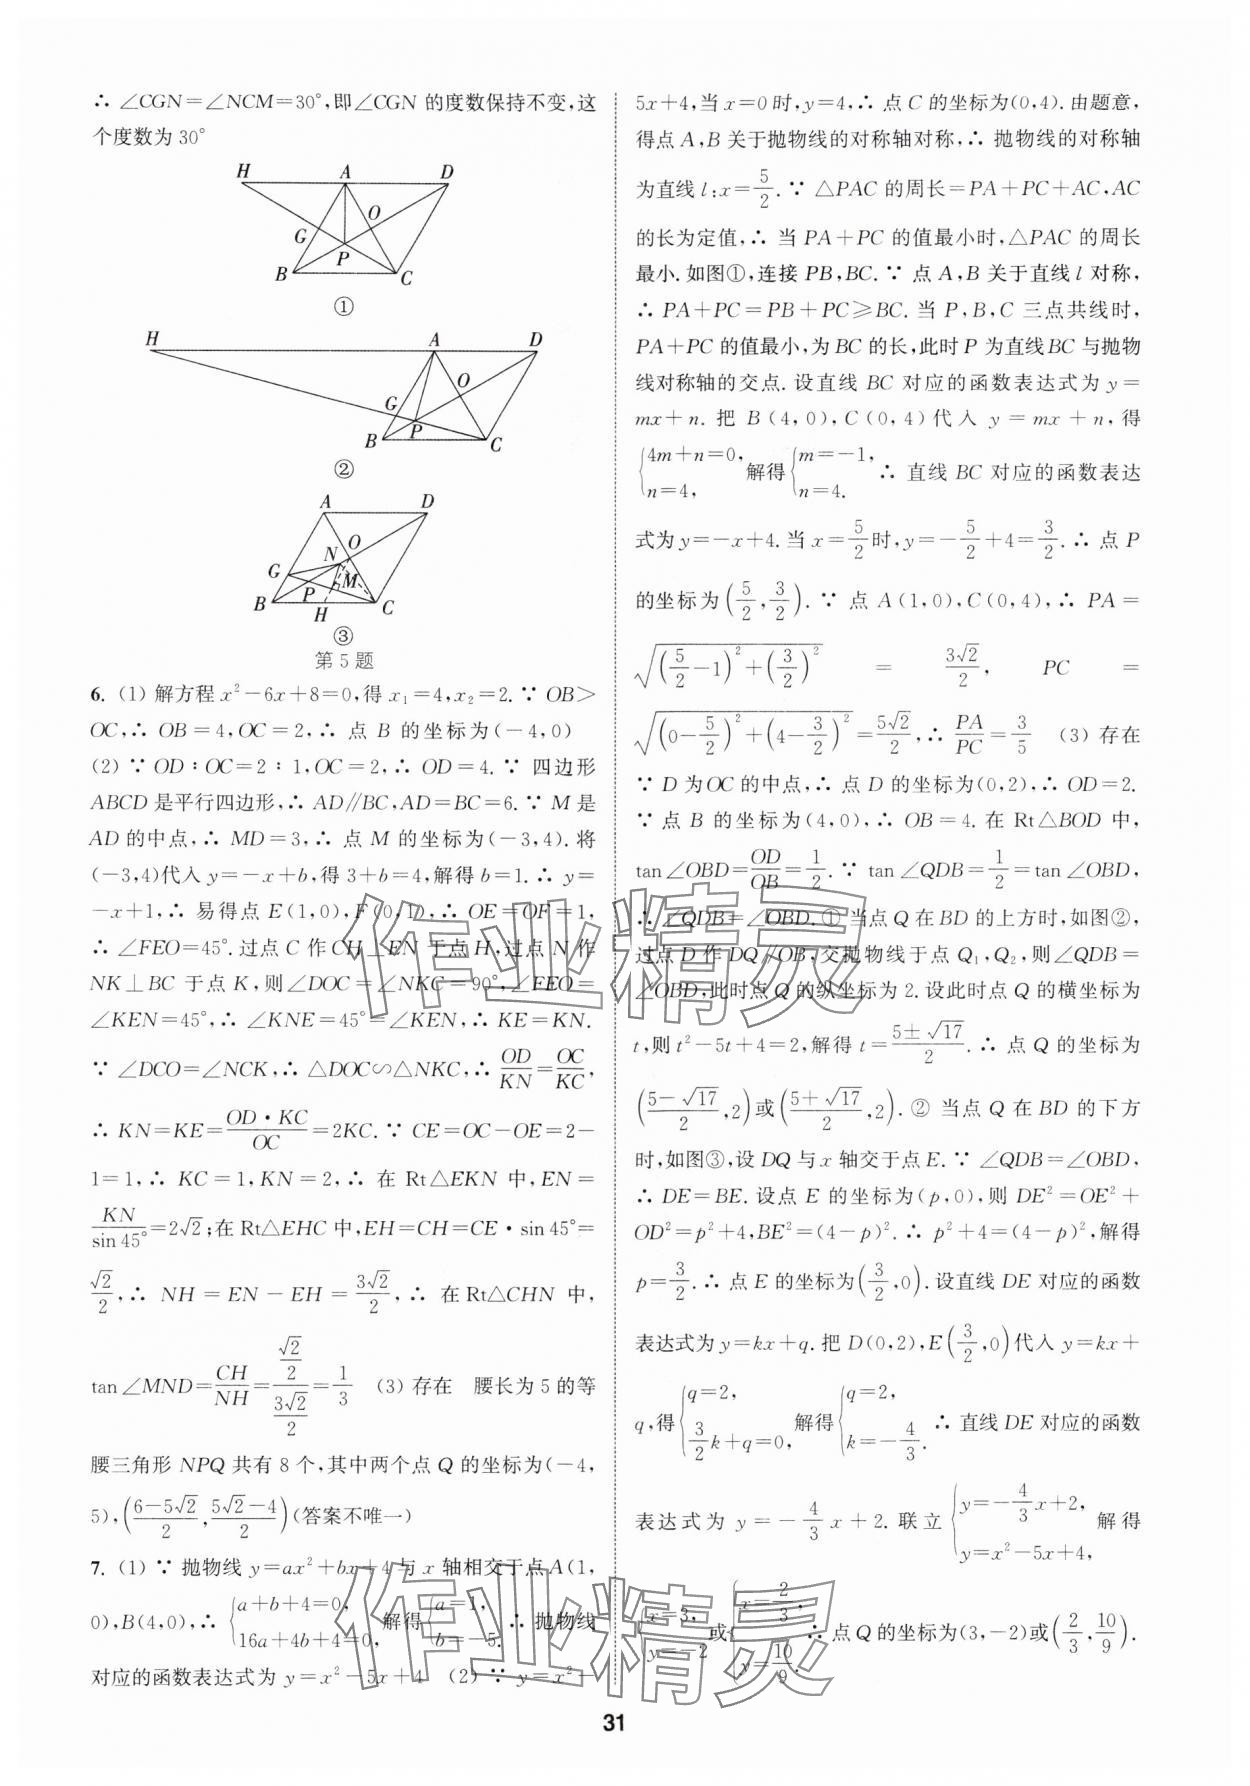 ∴ ∠CGN=∠NCM=30°,即∠CGN 的度数保持不变,这
个度数为 30°
H A D
O
G
P
B C
①
H A D
O
G
P
B C
②
A D
O
N
G
M
P
B H C
③
第 5 题
6. (1) 解方程 x²-6x+8=0,得 x₁=4,x₂=2.∵ OB>
OC,∴ OB=4,OC=2,∴ 点 B 的坐标为(-4,0)
(2) ∵ OD∶OC=2∶1,OC=2,∴ OD=4.∵ 四边形
ABCD 是平行四边形,∴ AD∥BC,AD=BC=6.∵ M 是
AD 的中点,∴ MD=3,∴ 点 M 的坐标为(-3,4).将
(-3,4)代入 y=-x+b,得 3+b=4,解得 b=1.∴ y=
-x+1,∴ 易得点 E(1,0),F(0,1),∴ OE=OF=1,
∴ ∠FEO=45°.过点 C 作 CH⊥EN 于点 H,过点 N 作
NK⊥BC 于点 K,则∠DOC=∠NKC=90°,∠FEO=
∠KEN=45°,∴ ∠KNE=45°=∠KEN,∴ KE=KN.
∵ ∠DCO=∠NCK,∴ △DOC∽△NKC,∴ OD/KN=OC/KC,
∴ KN=KE=OD·KC/OC=2KC.∵ CE=OC-OE=2-
1=1,∴ KC=1,KN=2,∴ 在 Rt△EKN 中,EN=
KN/sin 45°=2√2;在 Rt△EHC 中,EH=CH=CE·sin 45°=
√2/2,∴ NH=EN-EH=3√2/2,∴ 在 Rt△CHN 中,
tan∠MND=CH/NH=(√2/2)/(3√2/2)=1/3 (3) 存在 腰长为 5 的等
腰三角形 NPQ 共有 8 个,其中两个点 Q 的坐标为(-4,
5),((6-5√2)/2,(5√2-4)/2)(答案不唯一)
7. (1) ∵ 抛物线 y=ax²+bx+4 与 x 轴相交于点 A(1,
0),B(4,0),∴ {a+b+4=0, 16a+4b+4=0, 解得{a=1, b=-5. ∴ 抛物线
对应的函数表达式为 y=x²-5x+4 (2) ∵ y=x²-
5x+4,当 x=0 时,y=4,∴ 点 C 的坐标为(0,4).由题意,
得点 A,B 关于抛物线的对称轴对称,∴ 抛物线的对称轴
为直线 l:x=5/2.∵ △PAC 的周长=PA+PC+AC,AC
的长为定值,∴ 当 PA+PC 的值最小时,△PAC 的周长
最小.如图①,连接 PB,BC.∵ 点 A,B 关于直线 l 对称,
∴ PA+PC=PB+PC≥BC.当 P,B,C 三点共线时,
PA+PC 的值最小,为 BC 的长,此时 P 为直线 BC 与抛物
线对称轴的交点.设直线 BC 对应的函数表达式为 y=
mx+n.把 B(4,0),C(0,4)代入 y=mx+n,得
{4m+n=0, n=4, 解得{m=-1, n=4. ∴ 直线 BC 对应的函数表达
式为 y=-x+4.当 x=5/2时,y=-5/2+4=3/2.∴ 点 P
的坐标为(5/2,3/2).∵ 点 A(1,0),C(0,4),∴ PA=
√((5/2-1)²+(3/2)²) = 3√2/2, PC =
√((0-5/2)²+(4-3/2)²)=5√2/2,∴ PA/PC=3/5 (3) 存在
∵ D 为 OC 的中点,∴ 点 D 的坐标为(0,2),∴ OD=2.
∵ 点 B 的坐标为(4,0),∴ OB=4.在 Rt△BOD 中,
tan∠OBD=OD/OB=1/2.∵ tan∠QDB=1/2=tan∠OBD,
∴ ∠QDB=∠OBD.① 当点 Q 在 BD 的上方时,如图②,
过点 D 作 DQ∥OB,交抛物线于点 Q₁,Q₂,则∠QDB=
∠OBD,此时点 Q 的纵坐标为 2.设此时点 Q 的横坐标为
t,则 t²-5t+4=2,解得 t=(5±√17)/2.∴ 点 Q 的坐标为
((5-√17)/2,2)或((5+√17)/2,2).② 当点 Q 在 BD 的下方
时,如图③,设 DQ 与 x 轴交于点 E.∵ ∠QDB=∠OBD,
∴ DE=BE.设点 E 的坐标为(p,0),则 DE²=OE²+
OD²=p²+4,BE²=(4-p)².∴ p²+4=(4-p)²,解得
p=3/2.∴ 点 E 的坐标为(3/2,0).设直线 DE 对应的函数
表达式为 y=kx+q.把 D(0,2),E(3/2,0)代入 y=kx+
q,得{q=2, 3/2k+q=0, 解得{q=2, k=-4/3. ∴ 直线 DE 对应的函数
表达式为 y=-4/3x+2.联立{y=-4/3x+2, y=x²-5x+4, 解得
{x=3, y=-2 或{x=2/3, y=10/9. ∴ 点 Q 的坐标为(3,-2)或(2/3,10/9).
31
作业精灵
作业精灵